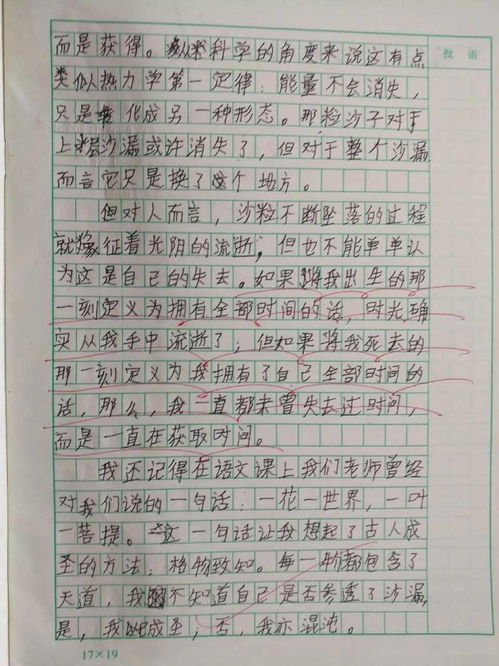 批 语
而是获得。从科学的角度来说这有点
类似热力学第一定律：能量不会消失，
只是转化成另一种形态。那粒沙子对于
上层沙漏或许消失了，但对于整个沙漏
而言它只是换了个地方。
但对人而言，沙粒不断坠落的过程
就像征着光阴的流逝，但也不能单单认
为这是自己的失去。如果将我出生的那
一刻定义为拥有全部时间的话，时光确
实从我手中流逝了；但如果将我死去的
那一刻定义为我拥有了自己全部时间的
话，那么，我一直都未曾失去过时间，
而是一直在获取时间。
我还记得在语文课上我们老师曾经
对我们说的一句话：一花一世界，一叶
一菩提。这一句话让我想起了古人成
圣的方法：格物致知。每一物都包含了
天道，我不知道自己是否参透了沙漏，
是，我以成圣，否，我亦混沌。
17×19